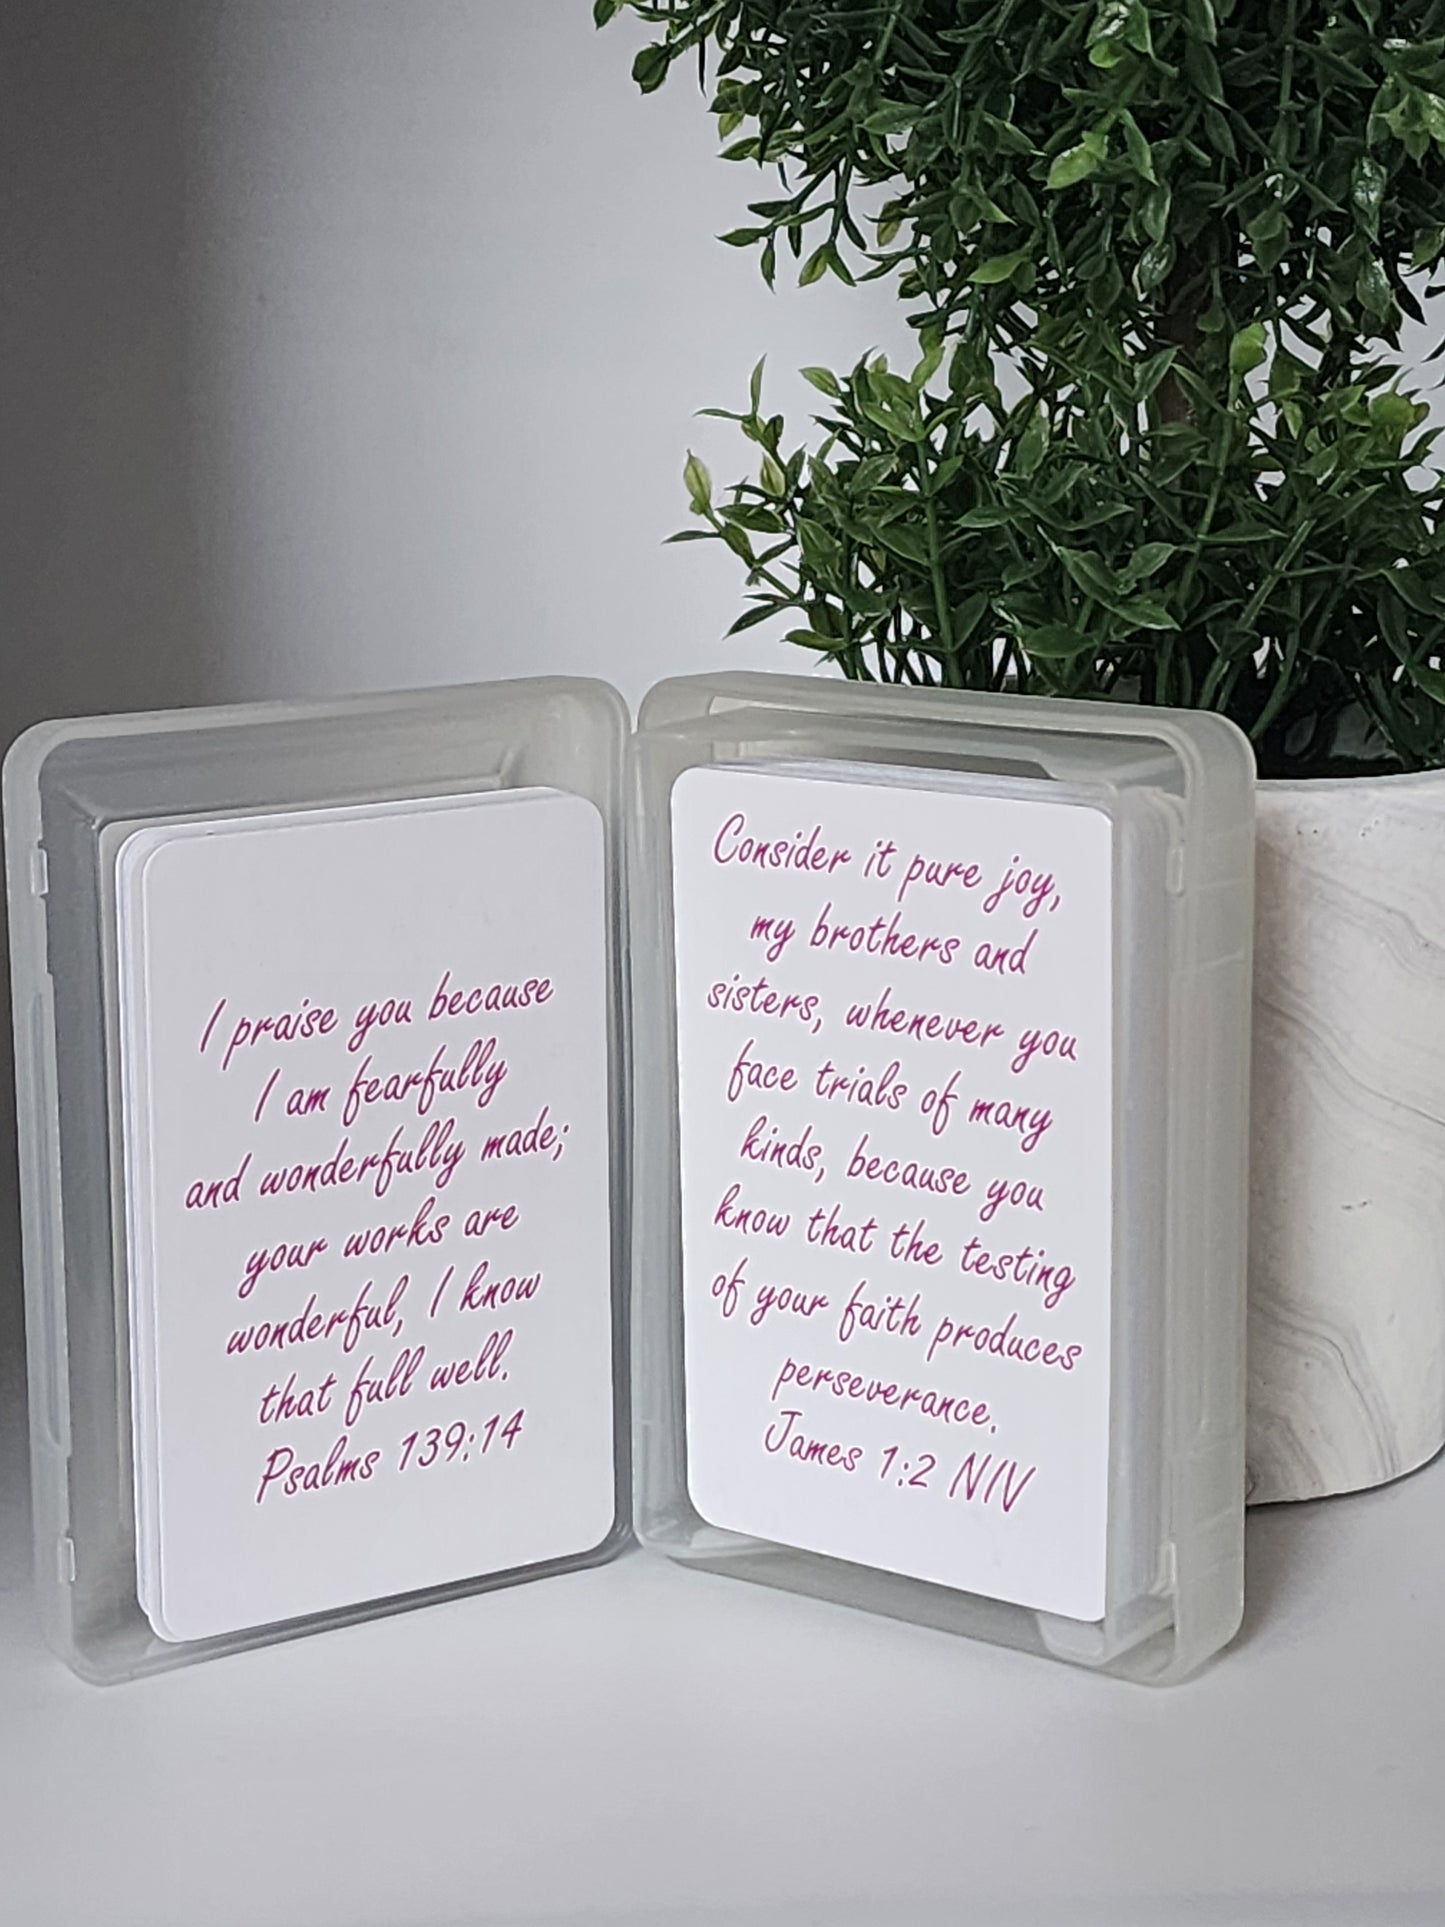 I praise you because
I am fearfully
and wonderfully made;
your works are
wonderful, I know
that full well.
Psalms 139:14
Consider it pure joy,
my brothers and
sisters, whenever you
face trials of many
kinds, because you
know that the testing
of your faith produces
perseverance.
James 1:2 NIV